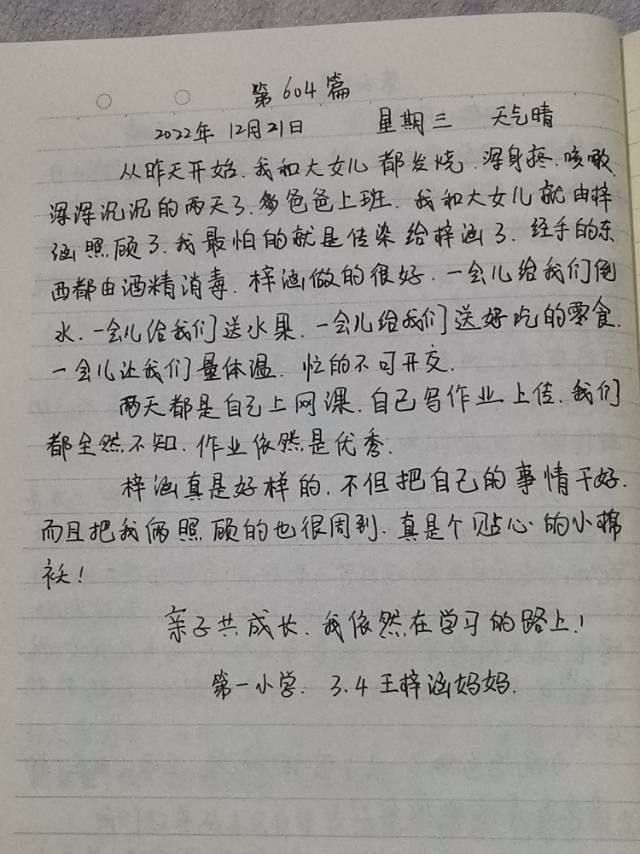 第604篇
2022年 12月21日 星期三 天气晴
从昨天开始.我和大女儿都发烧.浑身疼.咳嗽.
浑浑沉沉的两天了.爸爸上班.我和大女儿就由梓
涵照顾了.我最怕的就是传染给梓涵了.经手的东
西都由酒精消毒.梓涵做的很好.一会儿给我们倒
水.一会儿给我们送水果.一会儿给我们送好吃的零食.
一会儿让我们量体温.忙的不可开交.
两天都是自己上网课.自己写作业上传.我们
都全然不知.作业依然是优秀.
梓涵真是好样的.不但把自己的事情干好.
而且把我俩照顾的也很周到.真是个贴心的小棉
袄!
亲子共成长.我依然在学习的路上!
第一小学. 3.4王梓涵妈妈.